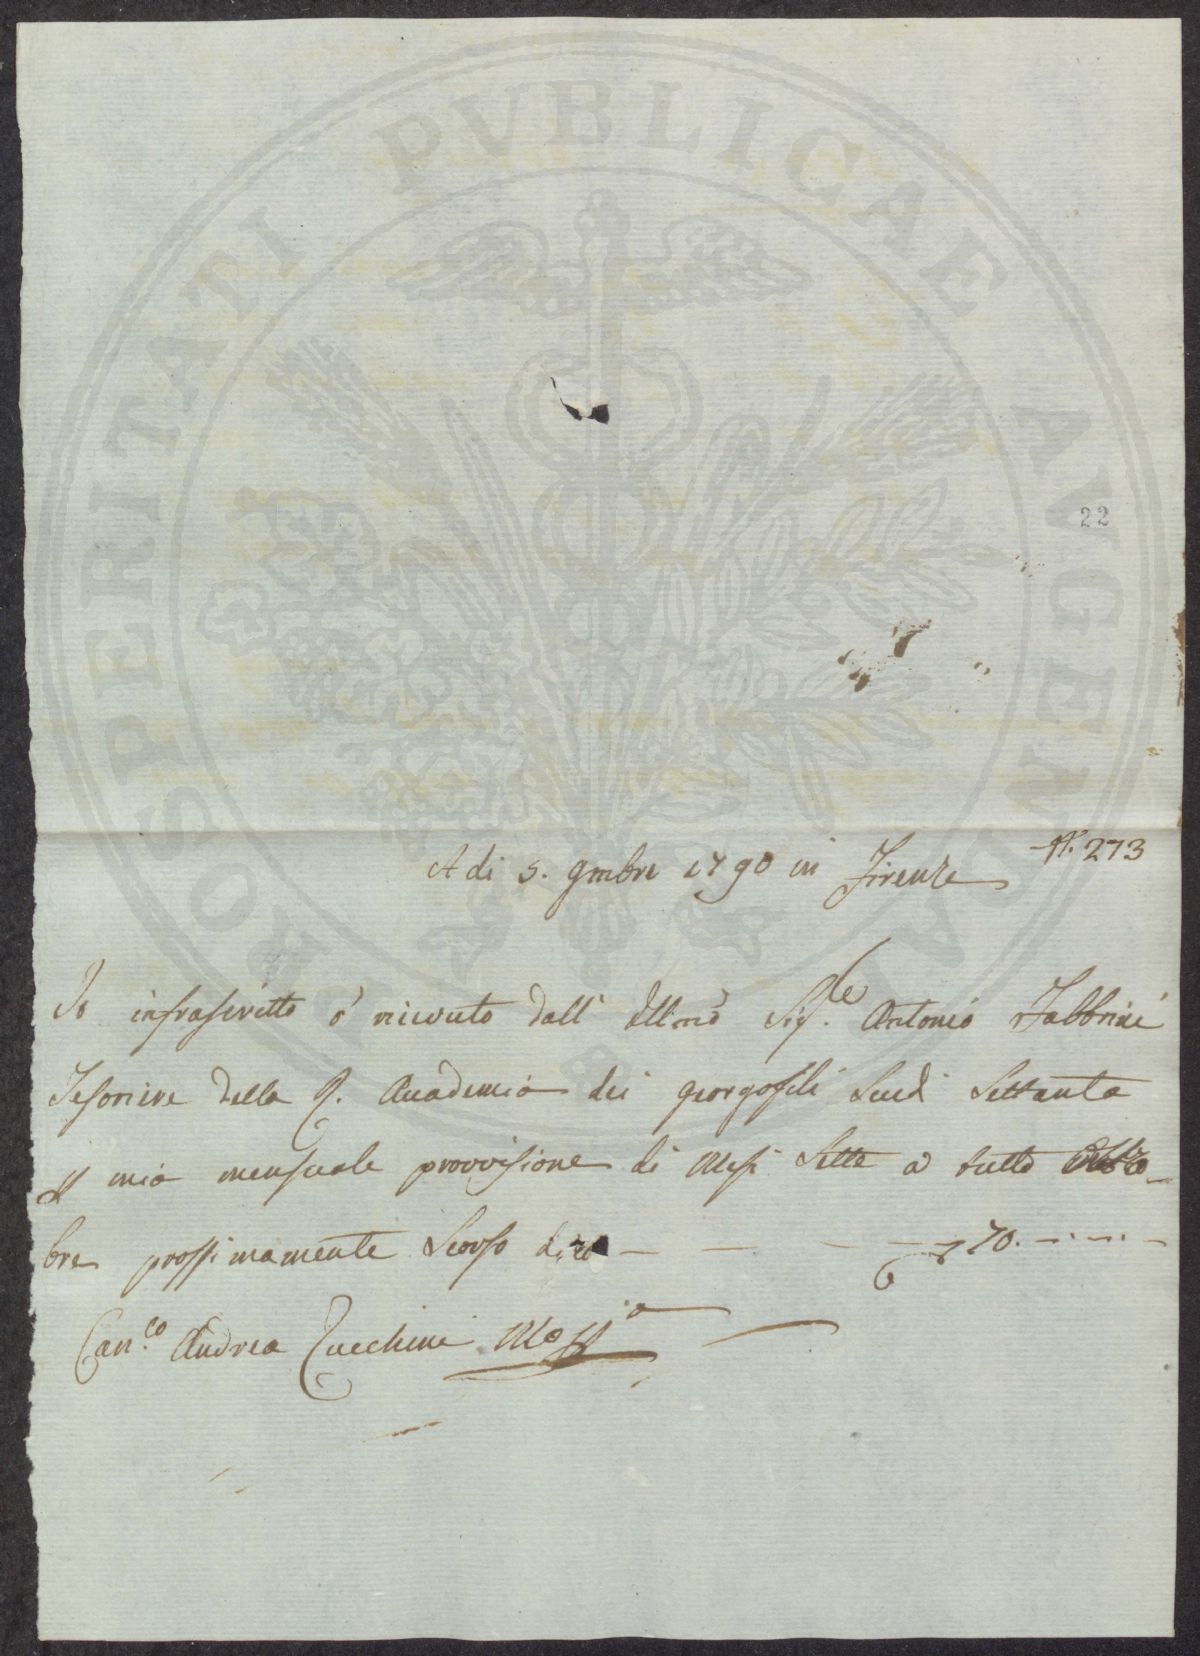 PROSPERITATI PVBLICAE AVGENDAE
22
N. 273
A di 5. 9mbre 1790 in Firenze
Io infrascritto ò ricevuto dall' Illmo Sig.le Antonio Fabbrini
Tesoriere della R. Accademia dei Georgofili Scudi Settanta
p mia mensuale provvisione di Mesi Sette a tutto Otto-
bre prossimamente Scorso dico — — — — 70. — — —
Can.co Andrea Zucchini Mo pp.a